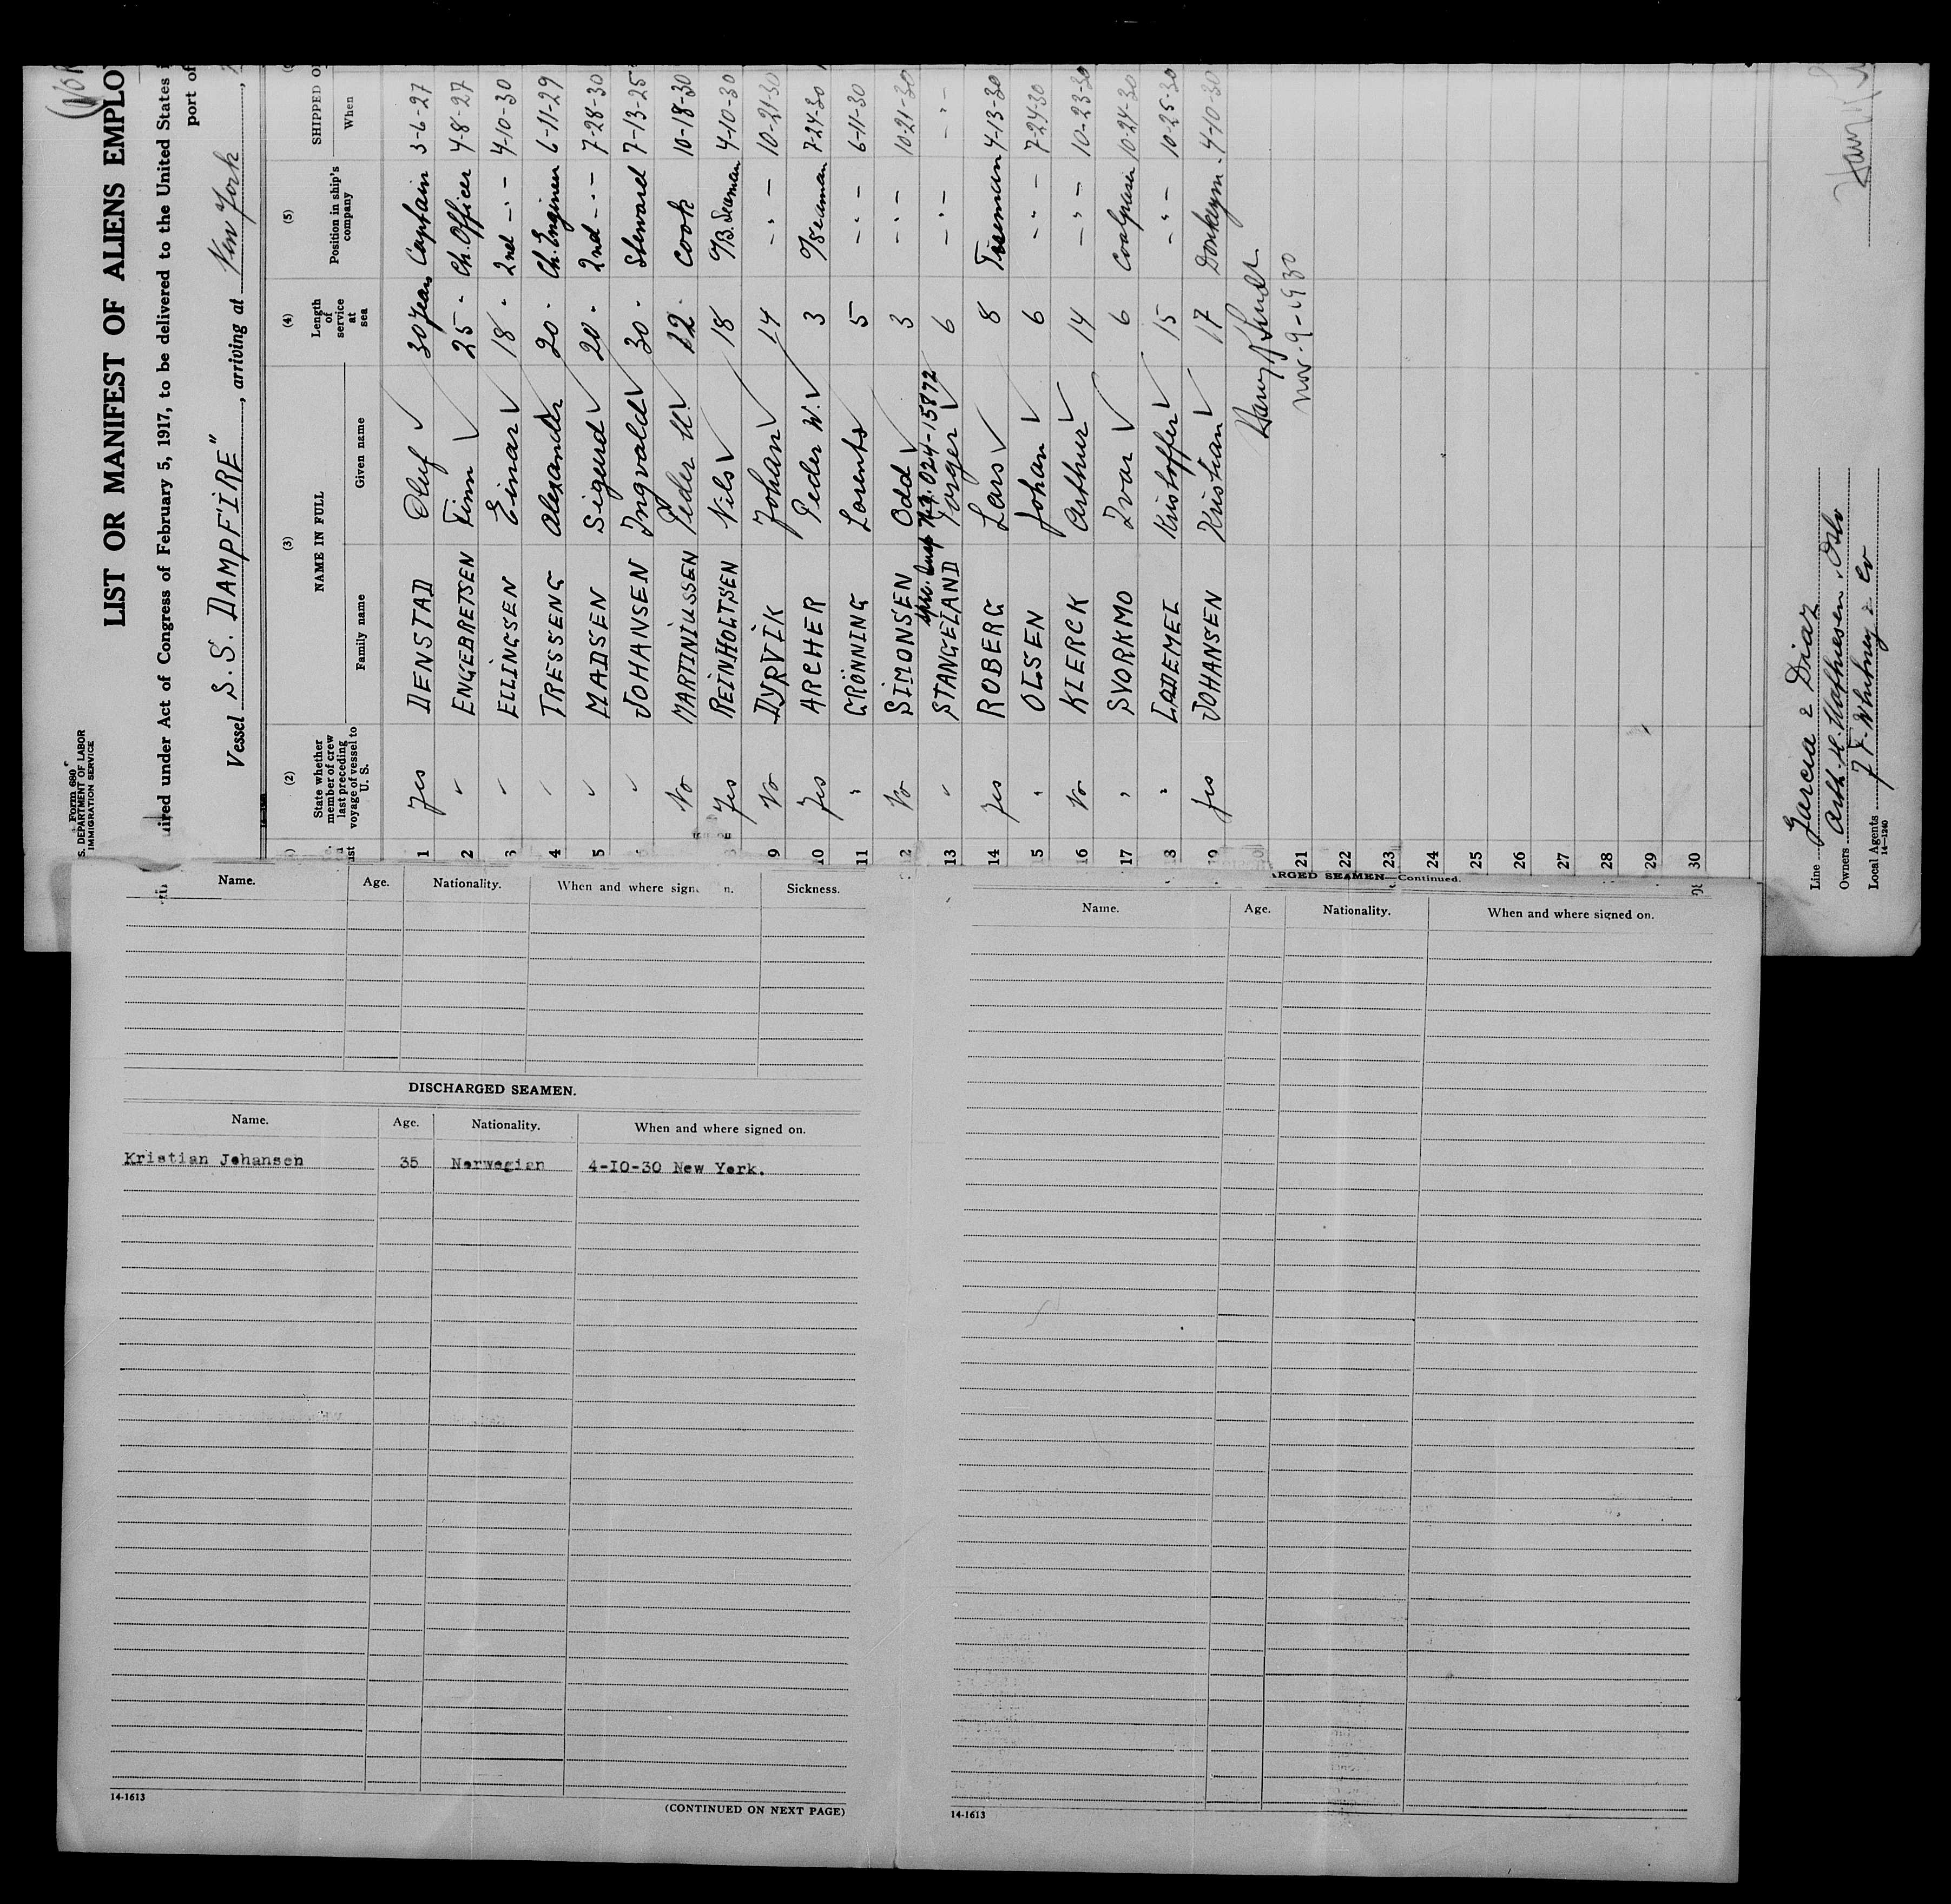 Form 680
S. DEPARTMENT OF LABOR
IMMIGRATION SERVICE
LIST OR MANIFEST OF ALIENS EMPLO
ired under Act of Congress of February 5, 1917, to be delivered to the United States i
port of
Vessel S.S. DAMPFIRE", arriving at New York,
(2) (3) (4) (5)
State whether member of crew last preceding voyage of vessel to U. S. NAME IN FULL Length of service at sea Position in ship's company SHIPPED O
Family name Given name When
1 Yes DENSTAD Oluf 30 years Captain 3-6-27
2 " ENGEBRETSEN Finn 25 - Ch. Officer 4-8-27
3 " ELLINGSEN Einar 18 - 2nd -"- 4-10-30
4 " TRESSENG Alexander 20 - Ch. Engineer 6-11-29
5 " MADSEN Sigurd 20 - 2nd -"- 7-28-30
" JOHANSEN Ingvald 30 - Steward 7-13-25
No MARTINIUSSEN Peder M. 22 - Cook 10-18-30
8 Yes REINHOLTSEN Nils 18 A/B. Seaman 4-10-30
9 No DYRVIK Johan 14 -"- 10-21-30
10 Yes ARCHER Peder W. 3 O/Seaman 7-24-30
11 " GRÖNNING Lorents 5 -"- 6-11-30
12 No SIMONSEN Odd 3 -"- 10-21-30
024-15872
13 " STANGELAND Torger 6 -"- -"-
14 Yes ROBERG Lars 8 Fireman 4-13-30
5 " OLSEN Johan 6 -"- 7-24-30
16 No KIERCK Arthur 14 -"- 10-23-30
17 " SVORKMO Ivar 6 Coalpasser 10-24-30
8 " LADEMEL Kristoffer 15 -"- 10-25-30
9 Yes JOHANSEN Kristian 17 Donkeym. 4-10-30
Nov-9-1930
21
22
23
24
25
26
27
28
29
30
Line Garcia & Diaz
Owners Arth. H. Mathiesen, Oslo
Local Agents J F Whitney & Co
14-1240
Name. Age. Nationality. When and where sign n. Sickness.
DISCHARGED SEAMEN.
Name. Age. Nationality. When and where signed on.
Kristian Johansen 35 Norwegian 4-10-30 New York.
14-1613
(CONTINUED ON NEXT PAGE)
ARGED SEAMEN—Continued.
Name. Age. Nationality. When and where signed on.
14-1613